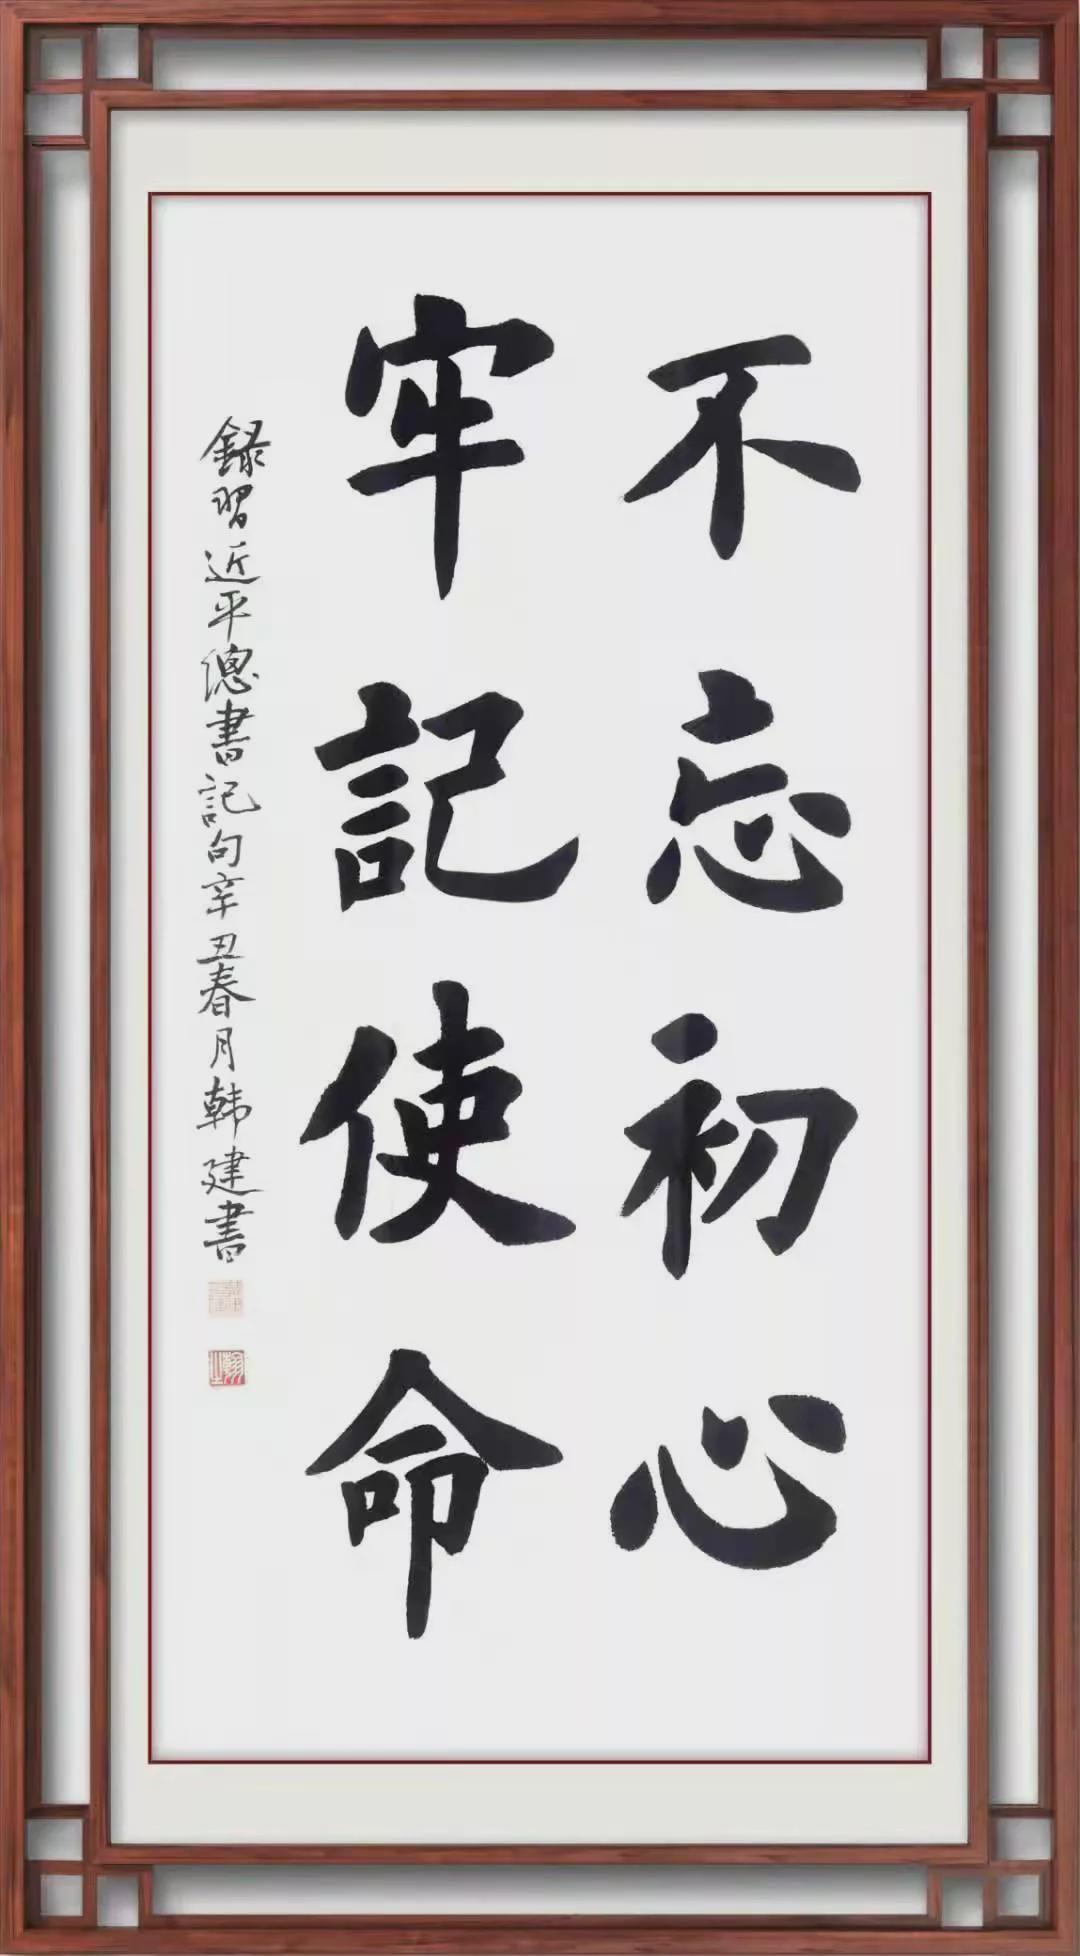 不忘初心
牢記使命
録習近平總書記句辛丑春月韩建書